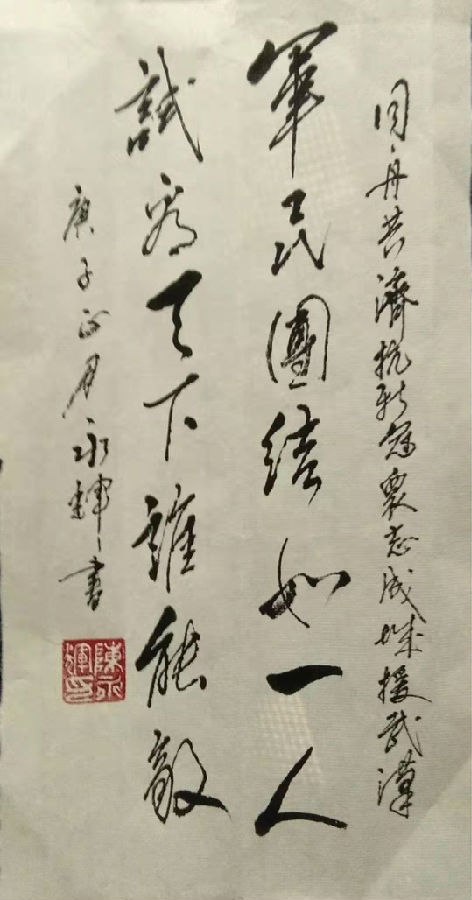 同舟共濟抗新冠衆志成城援武漢
軍民團結如一人
試看天下誰能敵
庚子正月永輝書
陳永輝印